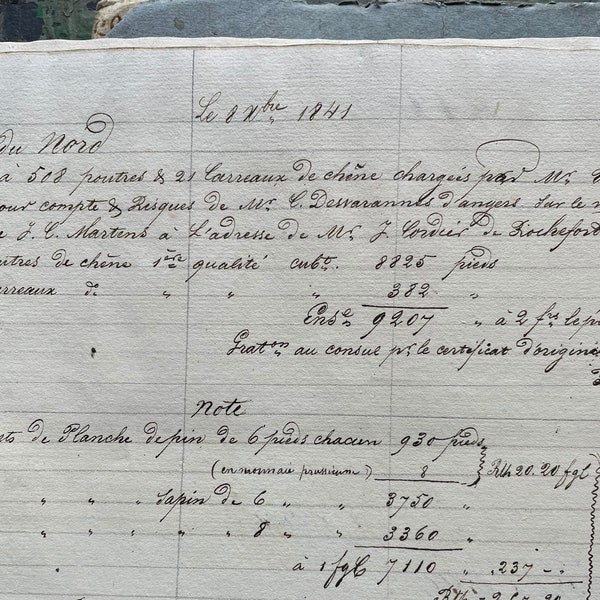 Le 8 Xbre 1841
du Nord
à 508 poutres & 21 Carreaux de chêne chargées par Mr.
our compte & Risques de Mr. C. Desvarannes d'angers sur le n
J. C. Martens à l'adresse de Mr. J. Cordier de Rochefort
outres de chêne 1ère qualité cubt. 8825 pieds
arreaux do " " " 382 "
Ense 9207 " à 2 frs le p
Graton au consul pr. le certificat d'origine
Note
ts de Planche de pin de 6 pieds chacun 930 pieds
(en monnaie prussienne) 8 Rth 20.20 fgl
" " " Sapin de 6 " " 3750 "
" " " " " 8 " " 3360 "
à 1 fgl 7110 " " 237 - "
Rth